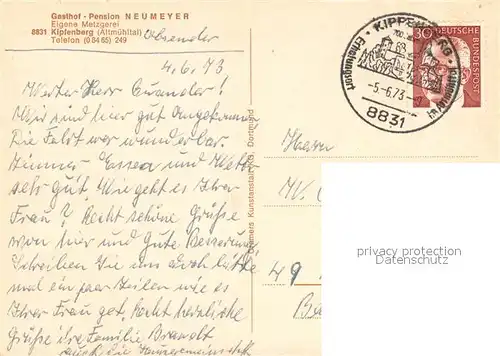 Gasthof - Pension NEUMEYER
Eigene Metzgerei
8831 Kipfenberg (Altmühltal)
Telefon (0 84 65) 249
Absender
4.6.73
Werter Herr
Wir sind hier gut angekommen
Die Fahrt war wunderbar.
Zimmer Essen und Wetter
sehr gut. Wie geht es Ihrer
Frau? Recht schöne Grüße
von hier und Gute Besserung
Schreiben Sie uns doch bitte
mal ein paar Zeilen wie es
Ihrer Frau geht. Recht herzliche
Grüße Ihre Familie Brandt
auch die
Kunstanstalt KG, Dortmund
KIPFENBERG
Erholungsort
-5.-6.73
8831
30
DEUTSCHE BUNDESPOST
Herrn
W.
49
privacy protection
Datenschutz